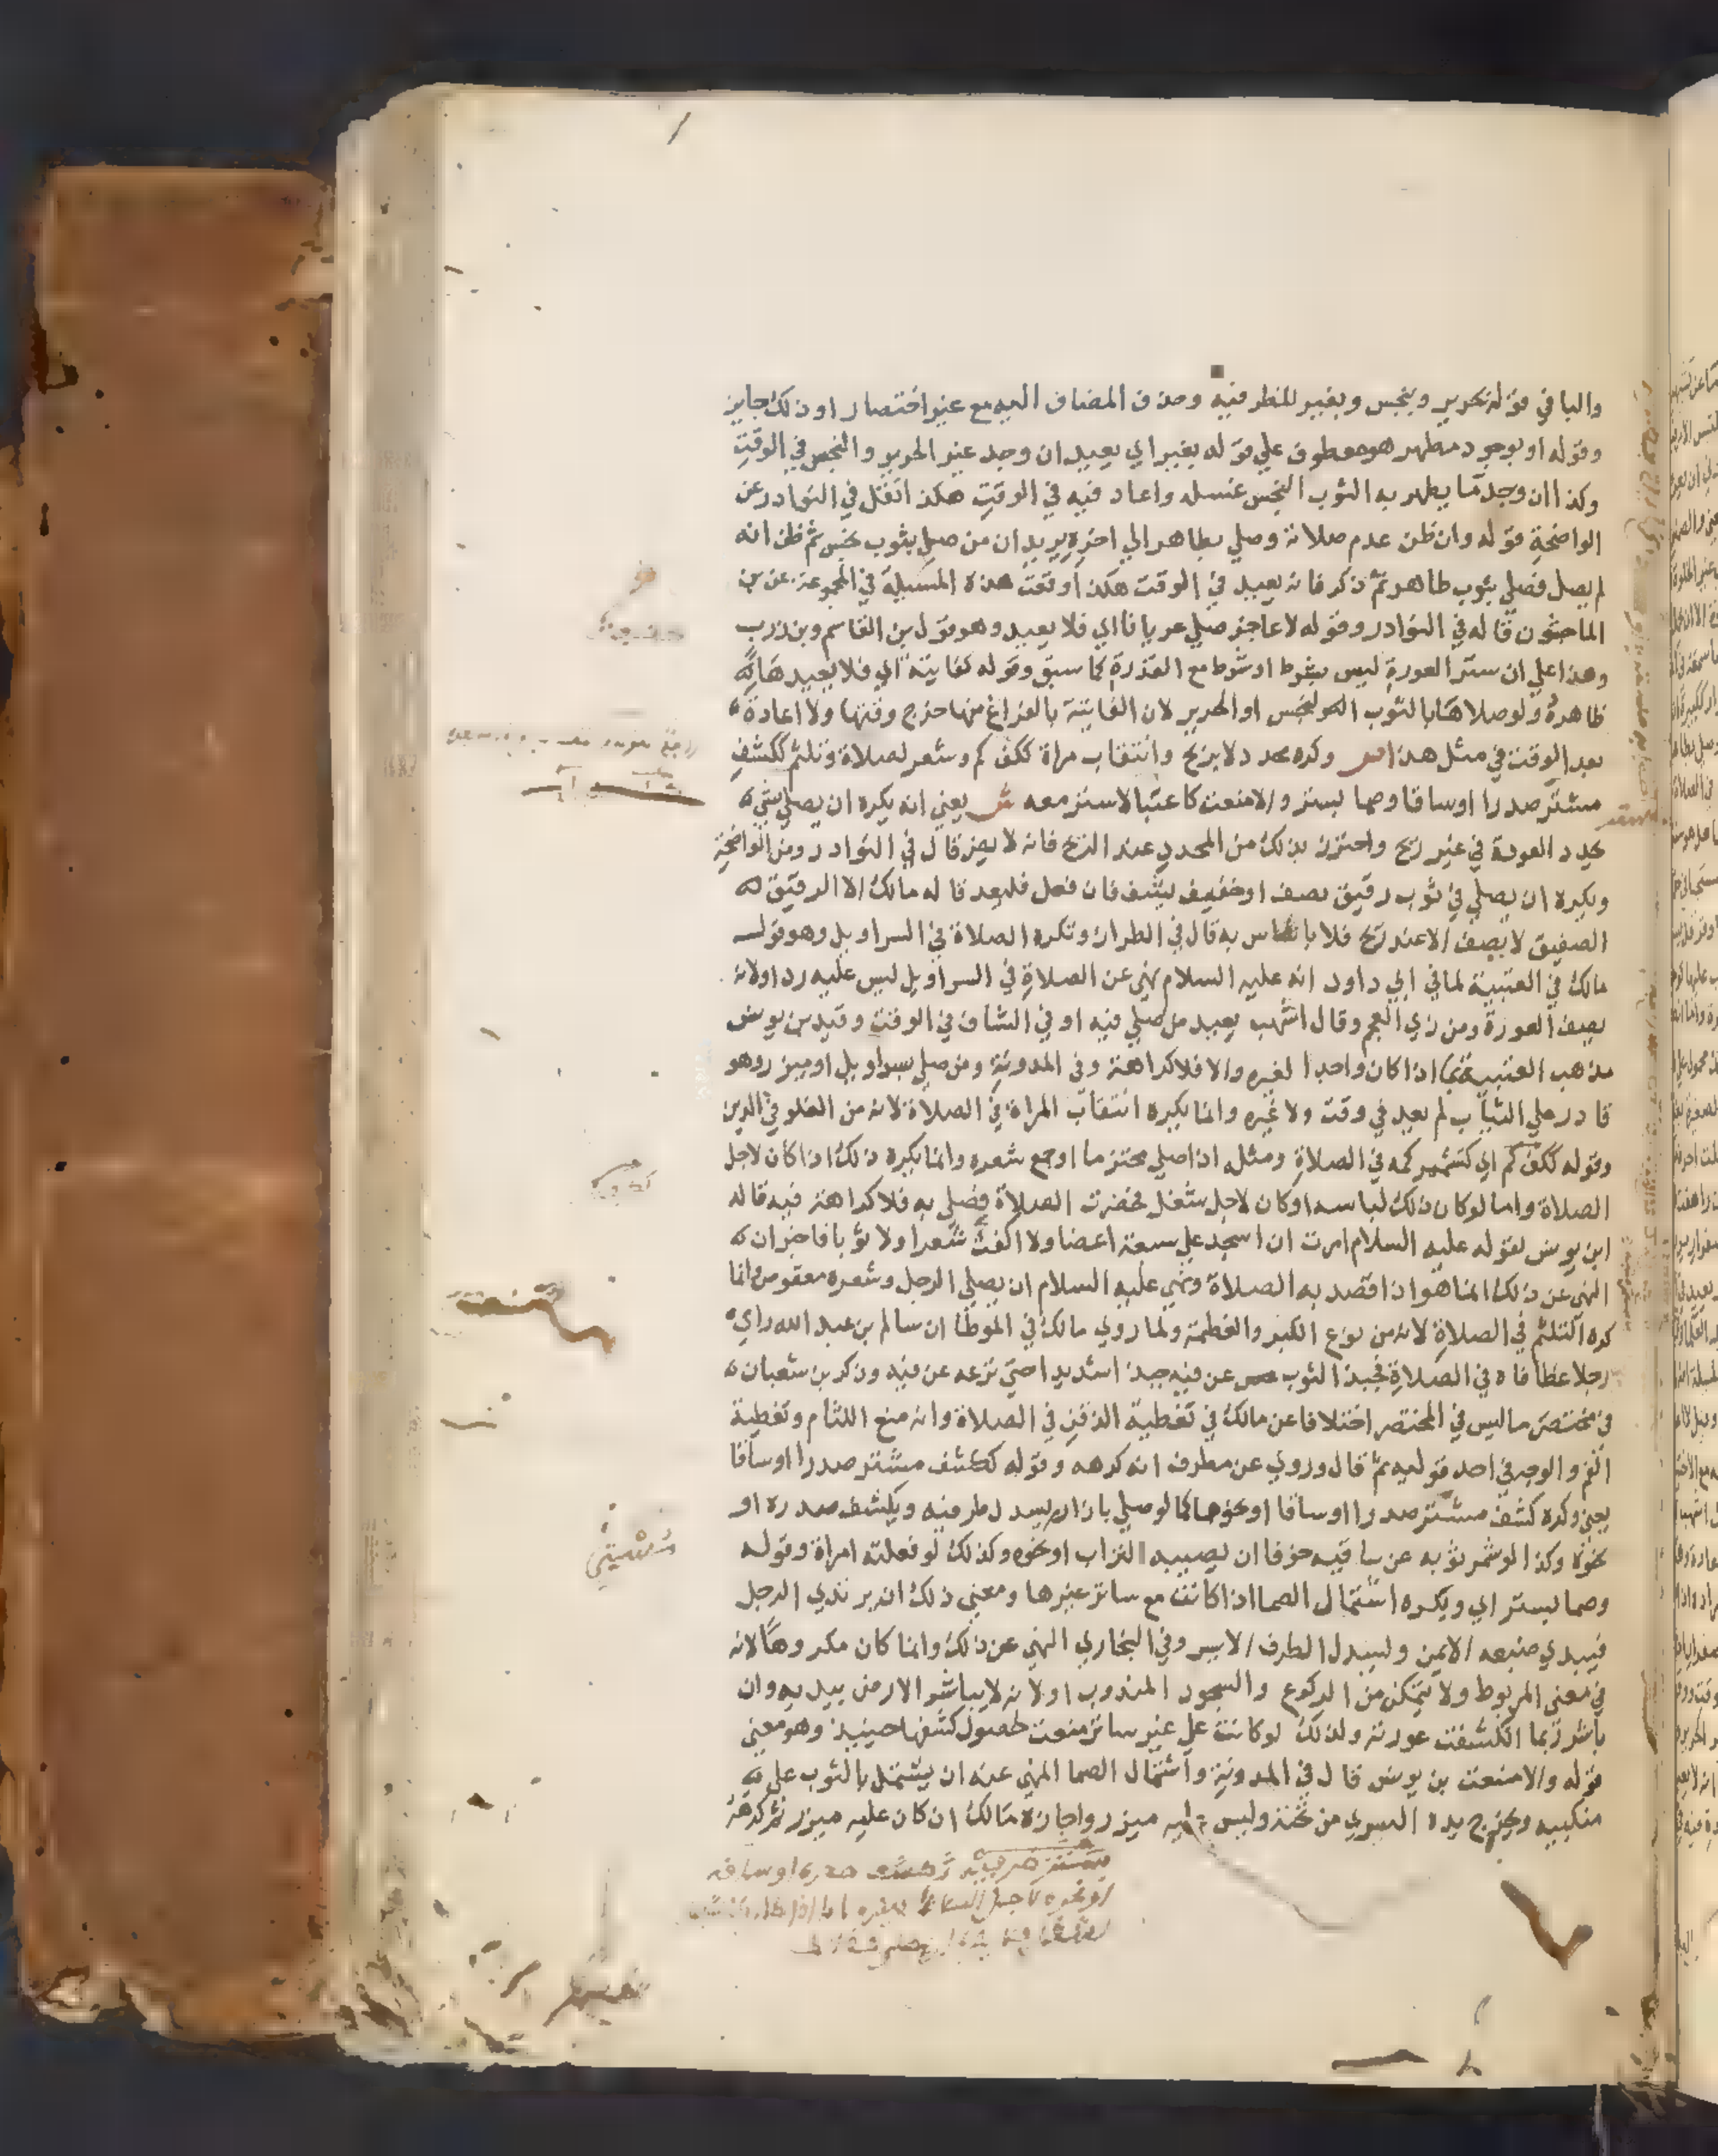 والبا في قوله بحرير وبنجس وبغير للظرفيه وحذف المضاف اليه مع غير اختصار او ذلك جايز
وقوله او بوجود مطهر هو معطوف علي قوله بغير اي يعيد ان وجد غير الحرير والنجس في الوقت
وكذا ان وجد ما يطهر به الثوب النجس غسله واعاد فيه في الوقت هكذا نقل في النوادر عن
الواضحة قوله وان ظن عدم صلاته وصلي بطاهر الي اخره يريد ان من صلي بثوب نجس ثم ظن انه
لم يصل فصلي بثوب طاهر ثم ذكر فانه يعيد في الوقت هكذا وقعت هذه المسيلة في المجموعة عن بن
الماجشون قاله في النوادر وقوله لا عاجز صلي عريانا اي فلا يعيد وهو قول بن القاسم وبن زرب
وهذا علي ان ستر العورة ليس بشرط او شرط مع القدرة كما سبق وقوله كفايتة اي فلا يعيدها
ظاهره ولو صلاها بالثوب النجس او الحرير لان الفايتة بالفراغ منها خرج وقتها ولا اعادة
بعد الوقت في مثل هذا ص وكره محدد لا بريح وانتقاب مراة ككف كم وشعر لصلاة وتلثم ككشف
مشتر صدرا او ساقا وصما بستر والا منعت كاحتبا لا ستر معه ش يعني انه يكره ان يصلي بشي
يحدد العورة في غير ريح واحترز بذلك من المحدد عند الريح فانه لا يضر قال في النوادر ومن الواضحة
ويكره ان يصلي في ثوب رقيق يصف او خفيف يشف فان فعل فليعد قاله مالك الا الرقيق
الصفيق لا يصف الا عند ريح فلا باس به قال في الطراز وتكره الصلاة في السراويل وهو قول
مالك في العتبية لما في ابي داود انه عليه السلام نهي عن الصلاة في السراويل ليس عليه ردا ولانه
يصف العورة ومن زي العجم وقال اشهب يعيد من صلي فيه او في الشاف في الوقت وقيد بن يونس
مذهب العتبية بما اذا كان واحدا لغيره والا فلا كراهة وفي المدونة ومن صلي بسراويل او ميزر وهو
قادر علي الثياب لم يعد في وقت ولا غيره وانما يكره انتقاب المراة في الصلاة لانه من الغلو في الدين
وقوله ككف كم اي كتشمير كمه في الصلاة ومثله اذا صلي محتزما او جمع شعره وانما يكره ذلك اذا كان لاجل
الصلاة واما لو كان ذلك لباسه او كان لاجل شغل فحضرت الصلاة فصلي به فلا كراهة فيه قاله
ابن يونس لقوله عليه السلام امرت ان اسجد علي سبعة اعضا ولا اكفت شعرا ولا ثوبا فاخبر ان
النهي عن ذلك انما هو اذا قصد به الصلاة ونهي عليه السلام ان يصلي الرجل وشعره معقوص وانما
كره التلثم في الصلاة لانه من نوع الكبر والعظمة ولما روي مالك في الموطا ان سالم بن عبد الله راي
رجلا غطا فاه في الصلاة فجبذ الثوب عن فيه جبذا شديدا حتي نزعه عن فيه وذكر بن شعبان
في مختصر ما ليس في المختصر اختلافا عن مالك في تغطية الذقن في الصلاة وانه منع اللثام وتغطية
الفم والوجه في احد قوليه ثم قال وروي عن مطرف انه كرهه وقوله ككشف مشتر صدرا او ساقا
يعني وكره كشف مشتر صدرا او ساقا او نحوها كما لو صلي بازار يسدل طرفيه ويكشف صدره او
نحوه وكذا لو شمر ثوبه عن ساقيه خوفا ان يصيبه التراب او نحوه وكذلك لو فعلته امراة وقوله
وصما بستر اي ويكره اشتمال الصما اذا كانت مع ساتر غيرها ومعني ذلك ان يرتدي الرجل
فيبدي ضبعه الايمن ويسدل الطرف الايسر وفي البخاري النهي عن ذلك وانما كان مكروها لانه
في معني المربوط ولا يتمكن من الركوع والسجود المندوب او لانه لا يباشر الارض بيديه وان
باشر ربما انكشفت عورته ولذلك لو كانت علي غير ساتر منعت لحصول كشفها حينيذ وهو معني
قوله والا منعت بن يونس قال في المدونة واشتمال الصما المنهي عنه ان يشتمل بالثوب علي
منكبيه ويخرج يده اليسري من تحته وليس عليه ميزر واجازه مالك ان كان عليه ميزر ثم كرهه